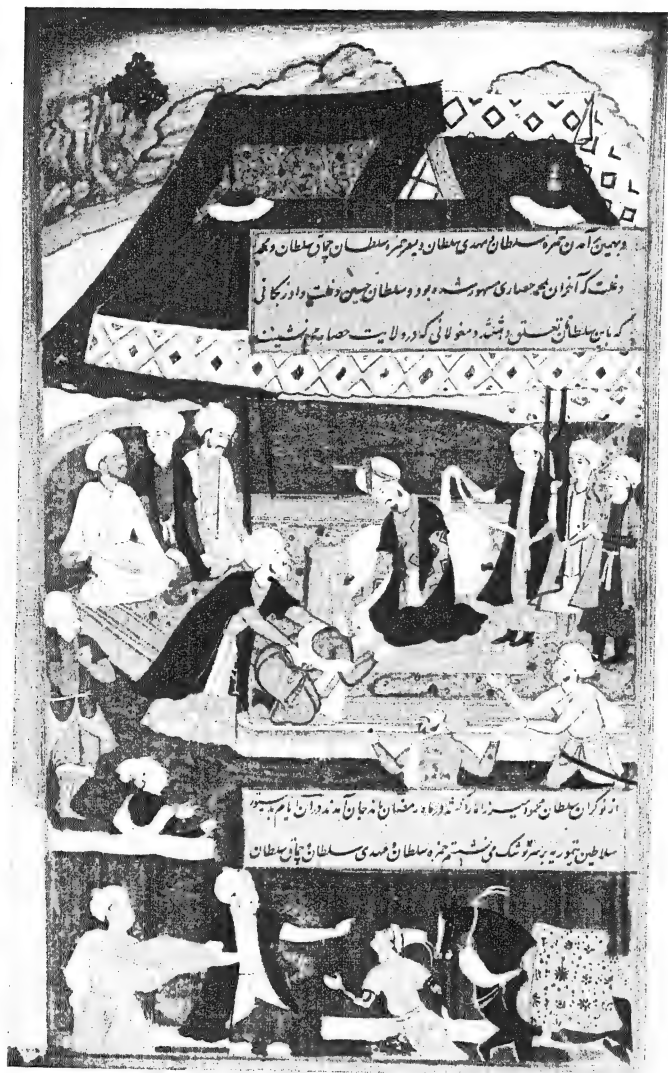 و همین آمدن حمزه سلطان و مهدی سلطان و پسر حمزه سلطان مماق سلطان و محمد
دغلت که آخران محمد حصاری مشهور شده بود و سلطان حسین دغلت و اوزبکانی
که باین سلطانان تعلق داشتند و مغولانی که در ولایت حصار می نشینند
از نوکران سلطان محمود میرزا در ماه رمضان باندجان آمدند در آن ایام بدستور
سلاطین تیموریه بر سر توشک می نشستم حمزه سلطان و مهدی سلطان و مماق سلطان